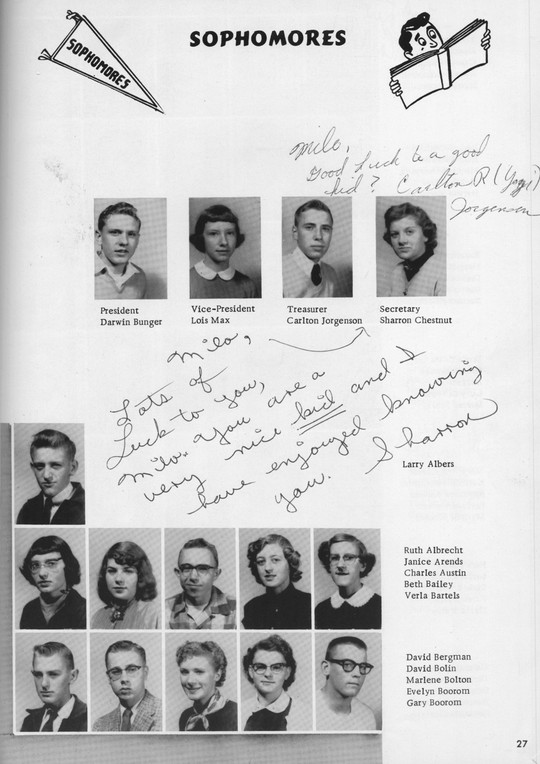 SOPHOMORES
SOPHOMORES
Milo,
Good Luck to a good
kid? Carlton R (Yogi)
Jorgensen
President
Darwin Bunger
Vice-President
Lois Max
Treasurer
Carlton Jorgenson
Secretary
Sharron Chestnut
Milo,
Lots of
Luck to you,
Milo. You are a
very nice kid and I
have enjoyed knowing
you. Sharron
Larry Albers
Ruth Albrecht
Janice Arends
Charles Austin
Beth Bailey
Verla Bartels
David Bergman
David Bolin
Marlene Bolton
Evelyn Boorom
Gary Boorom
27